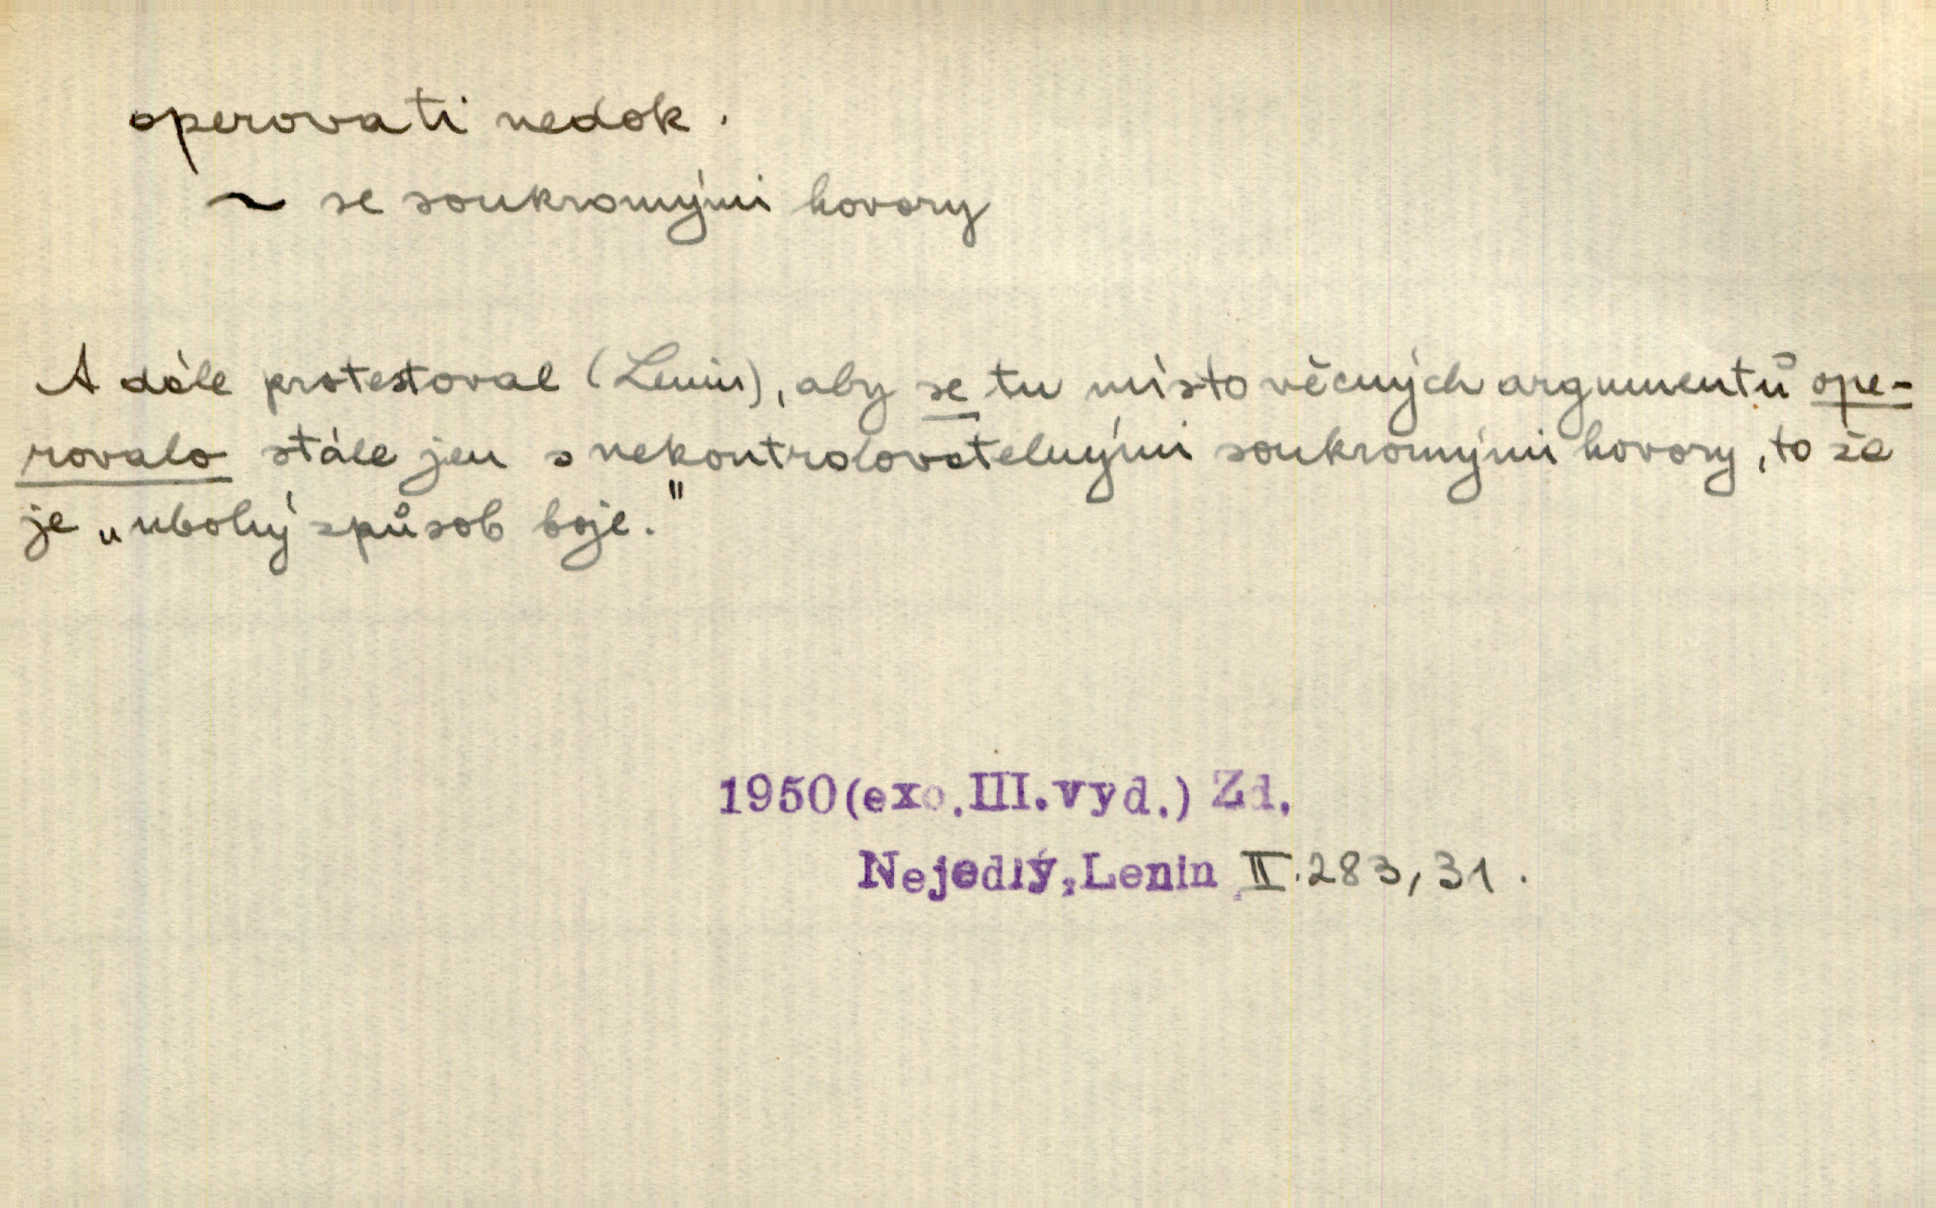 operovati nedok.
~ se soukromými hovory
A dále protestoval (Lenin), aby se tu místo věcných argumentů ope-
rovalo stále jen s nekontrolovatelnými soukromými hovory, to že
je „ubohý způsob boje."
1950(exc.III.vyd.) Zd.
Nejedlý,Lenin II.283,31.